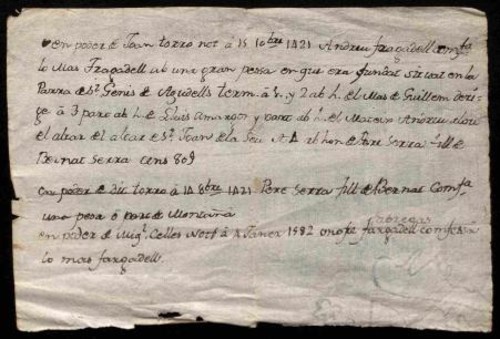 en poder de Joan torro not á 15 10bre 1421 Andreu fragadell confesa
lo Mas Fragadell ab una gran pessa en que era fundat situat en la
Parra de St. Genis de Agudells term. á y 2 ab h. el Mas de Guillem
á 3 part ab h. de Lluis Amargos y part ab h. el Mateix Andreu
el altar del altar de St. Joan de la Seu A 4 ab hon. de Pere Serra fill de
Bernat Serra cens 80
en poder de dit torro á 14 8bre 1421 Pere Serra fill de Bernat Confesa
una pesa o part de Montaña
fabregas
en poder de Miq. Celles Nott á Janer 1582 onofre fargadell confessa
lo mas fargadell.